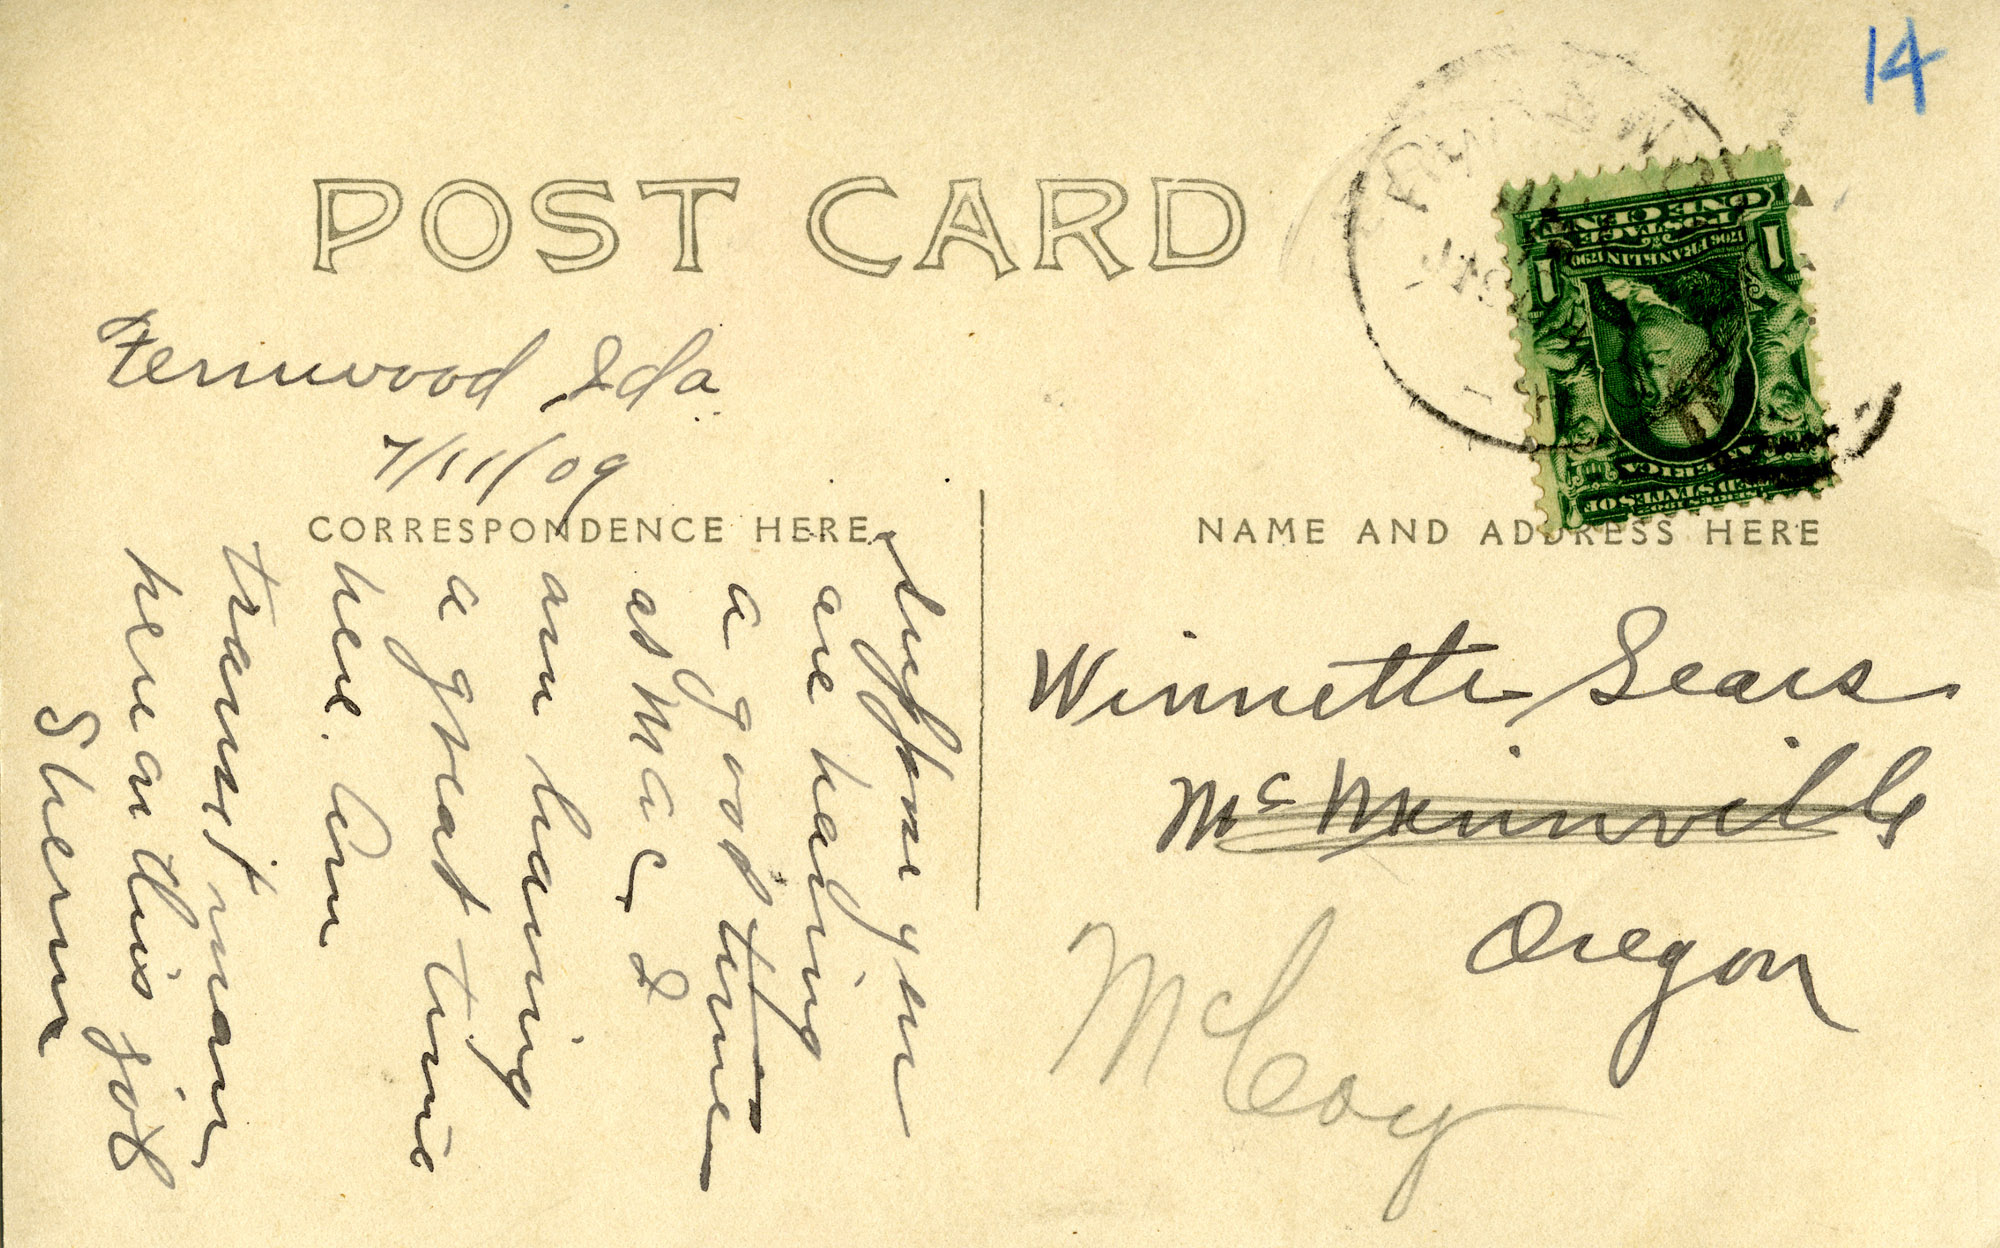 14
POST CARD
Fernwood, Ida.
7/11/09
CORRESPONDENCE HERE
Suppose you
are having
a good time
as Mac I
am having
a great time
here. Am
transit man
here on this job
Sherm
NAME AND ADDRESS HERE
Winnette Sears
McMinnville
Oregon
McCoy
1 POSTAGE 1
ONE CENT
1706 FRANKLIN 1790
UNITED STATES OF
AMERICA